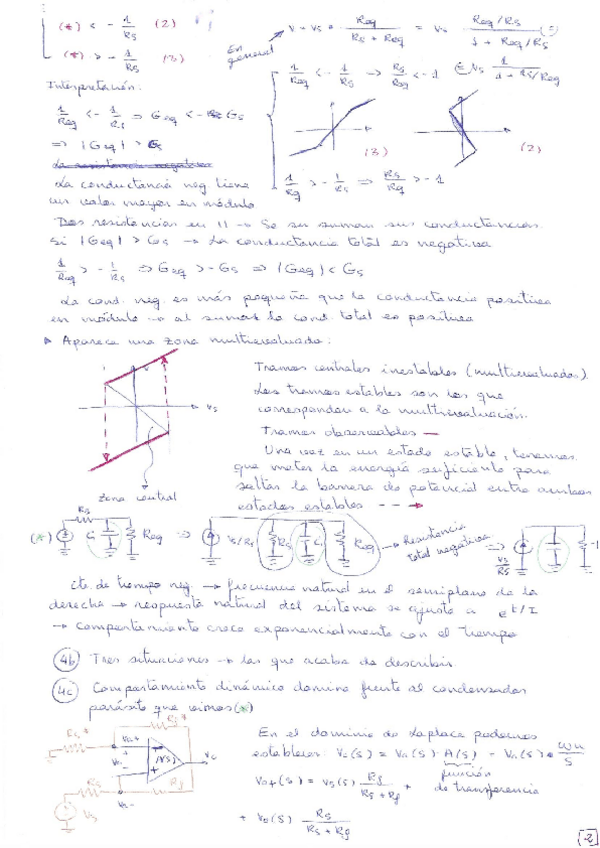 (*) < - 1/Rs (2)
(*) > - 1/Rs (3)
En general
v = vs · Req / (Rs + Req) = vs · (Req/Rs) / (1 + Req/Rs)
= vs 1 / (1 + Rs/Req)
Interpretación:
1/Req < - 1/Rs ⇒ Geq < - Gs
⇒ |Geq| > Gs
1/Req < - 1/Rs ⇒ Rs/Req < -1
(3)
(2)
1/Req > - 1/Rs ⇒ Rs/Req > -1
La conductancia neg tiene
un valor mayor en módulo
Dos resistencias en // → Se suman sus conductancias.
Si |Geq| > Gs → La conductancia total es negativa
1/Req > - 1/Rs ⇒ Geq > - Gs ⇒ |Geq| < Gs
La cond. neg. es más pequeña que la conductancia positiva
en módulo → al sumar la cond. total es positiva
Aparece una zona multievaluada:
vs
zona central
Tramos centrales inestables (multievaluados).
Los tramos estables son los que
corresponden a la multievaluación.
Tramos observables —
Una vez en un estado estable, tenemos
que meter la energía suficiente para
saltar la barrera de potencial entre ambos
estados estables - - →
(*) Rs Req ⇒ vs/Rs Rs Req → Resistencia
total negativa ⇒ vs/Rs
cte. de tiempo neg. → frecuencia natural en el semiplano de la
derecha → respuesta natural del sistema se ajusta a e^t/τ
→ comportamiento crece exponencialmente con el tiempo
4b Tres situaciones → las que acabo de describir
4c Comportamiento dinámico domina frente al condensador
parásito que vimos (*)
Rs* Rf*
A(s)
Rs Rf
vs
En el dominio de Laplace podemos
establecer: vo(s) = va(s) · A(s) = va(s) · ωu/s
función
de transferencia
va+(s) = vs(s) Rf / (Rs + Rf) +
+ vo(s) Rs / (Rs + Rf)
2